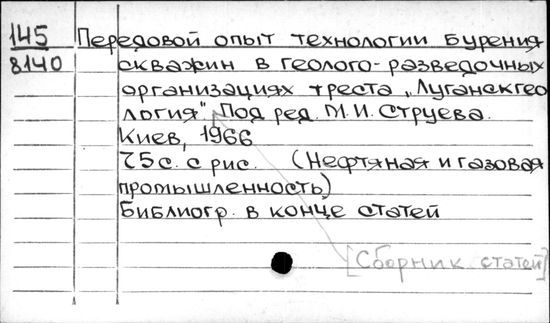 145 Передовой опыт технологии бурения
8140 скважин в геолого-разведочных
организациях треста „Луганскгео
логия". Под ред. М.И. Струева.
Киев, 1966
75 с. с рис. (Нефтяная и газовая
промышленность)
Библиогр. в конце статей
[Сборник статей]